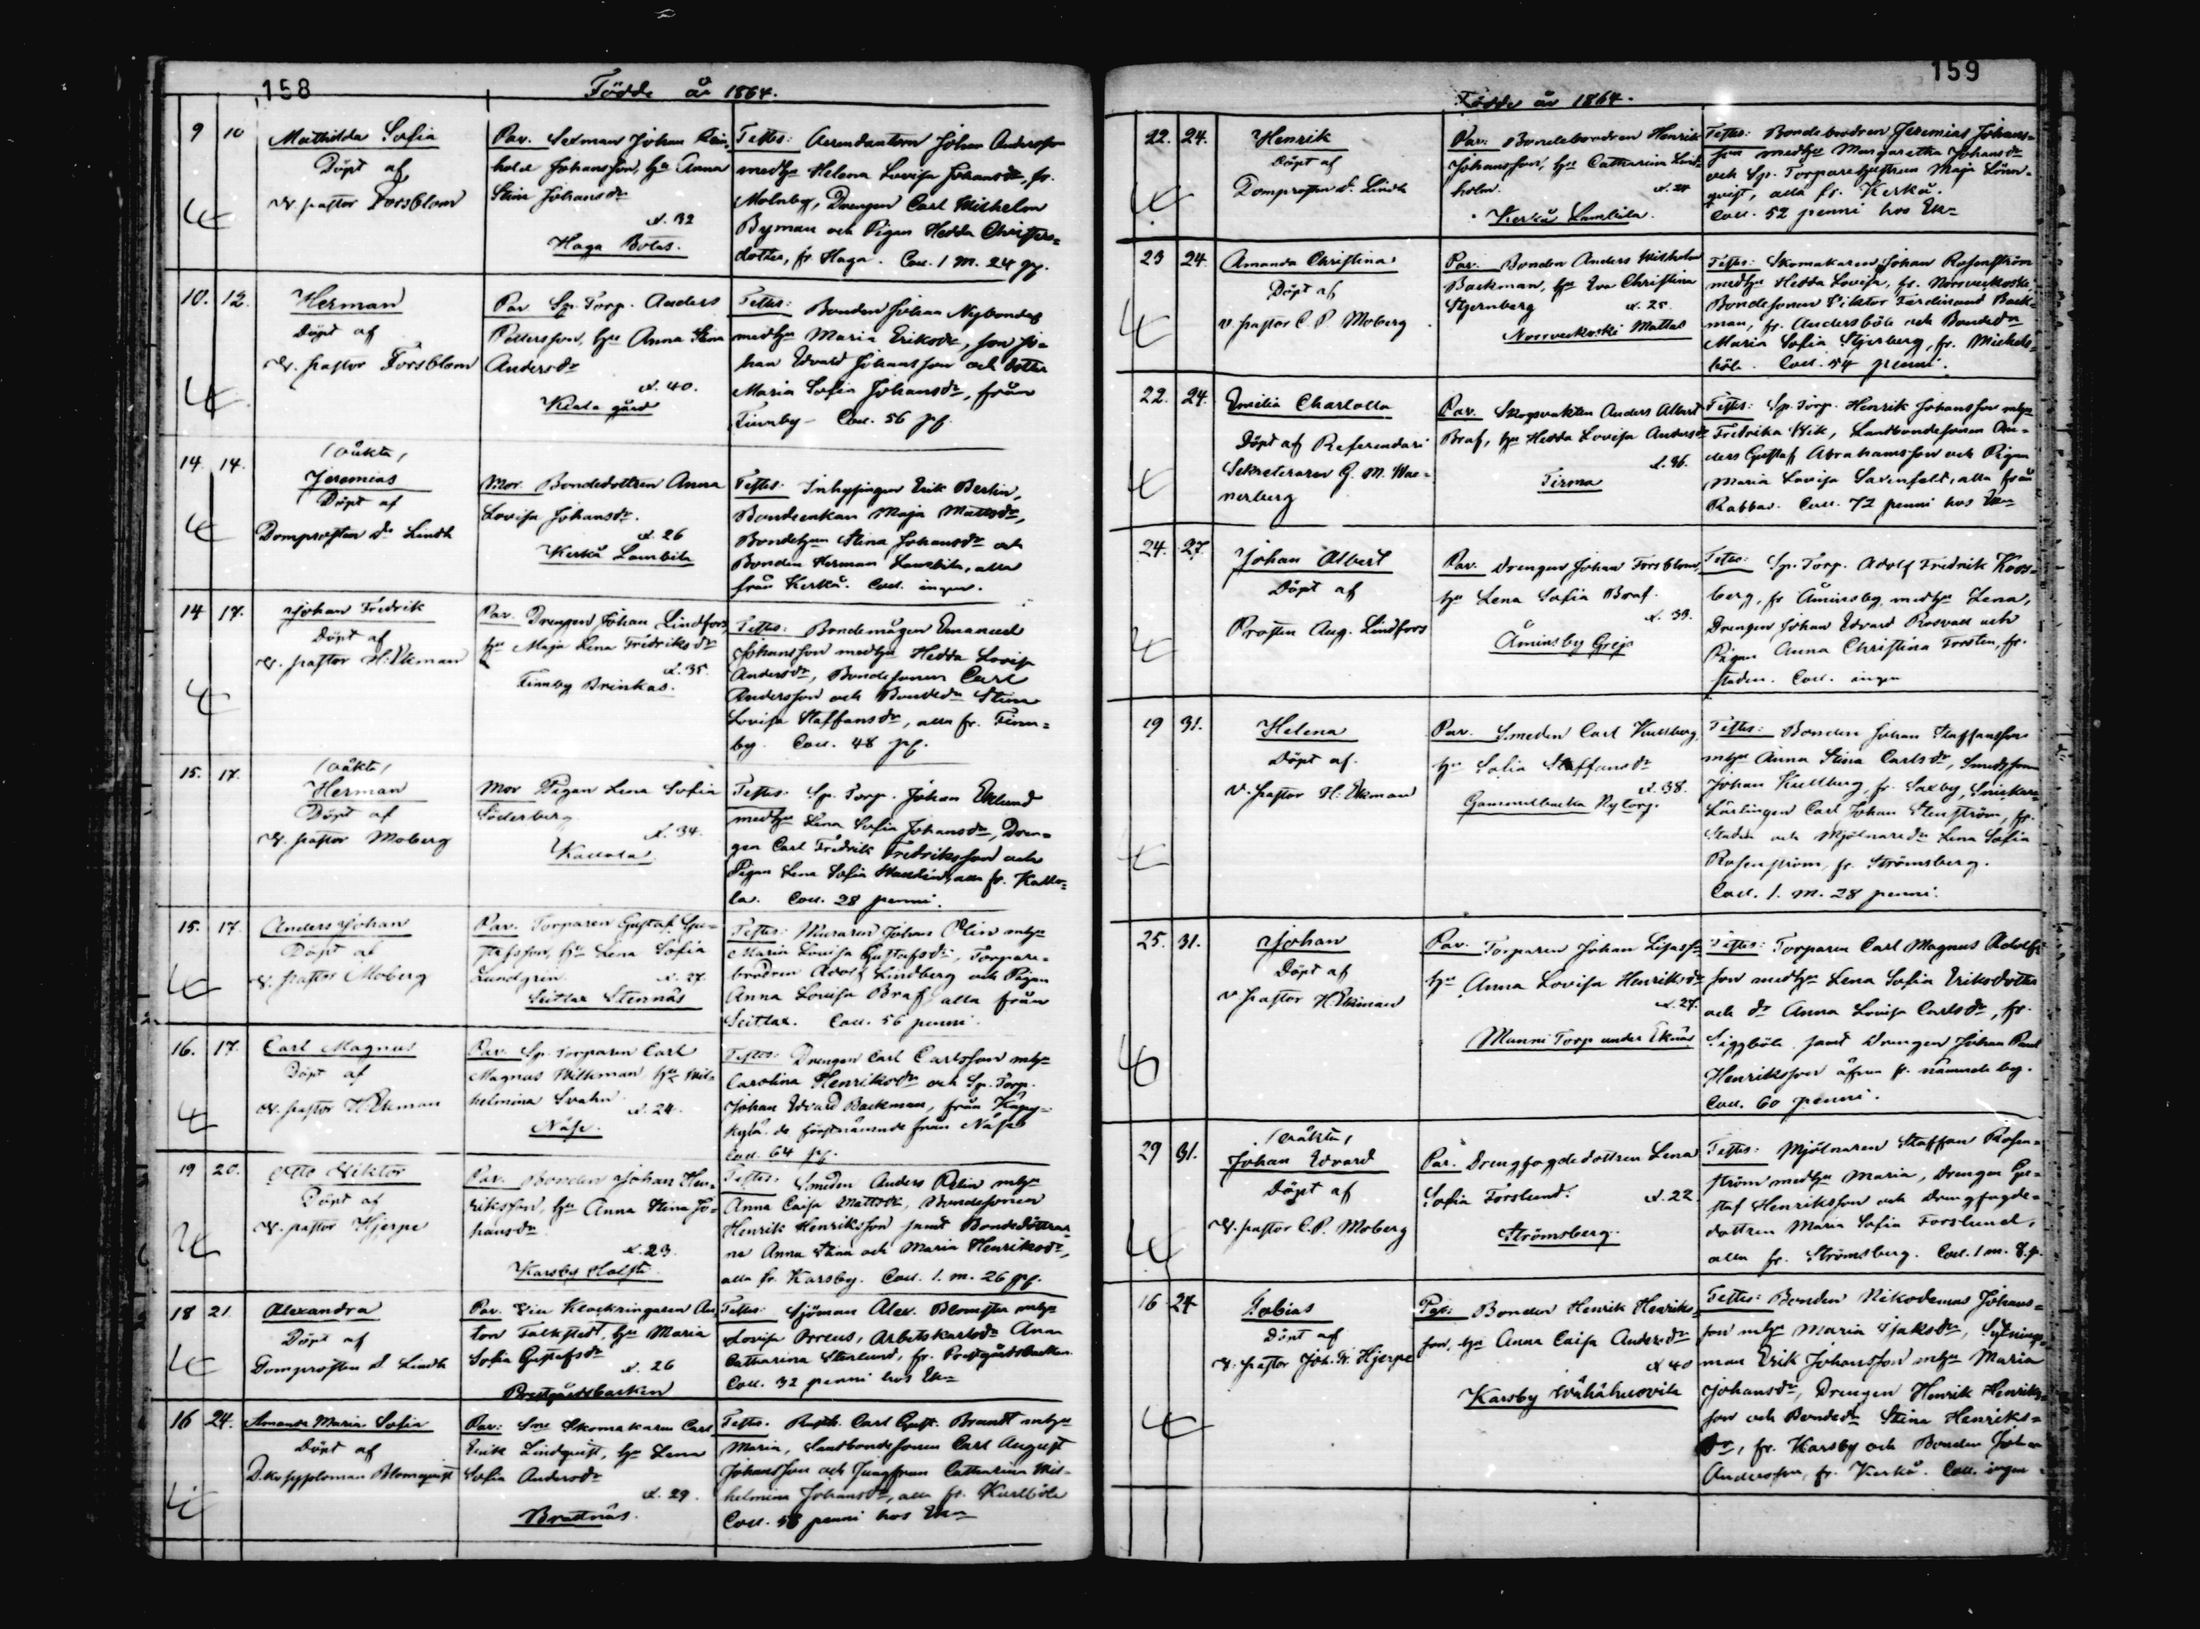 158
Födde år 1864.
9 10 Mathilda Sofia
Döpt af
v. pastor Forsblom
Par. Sexman Johan Rein-
hold Johansson, hu Anna
Stina Johansdr
ål. 32
Haga Botas.
Testes: Arrendatorn Johan Andersson
medhu Helena Lovisa Johansdr, fr.
Molnby, Drengen Carl Wilhelm
Byman och Pigan Hedda Christers-
dotter, fr Haga. Coll. 1 m. 24 pf.
10. 12. Herman
Döpt af
v. pastor Forsblom
Par Sp. Torp. Anders
Pettersson, hu Anna Stina
Andersdr
ål. 40.
Kiala gård
Testes: Bonden Johan Nybondas
medhu Maria Eriksdr, son Jo-
han Edvard Johansson och dotter
Maria Sofia Johansdr, från
Finnby – Coll. 56 pf.
14. 14. (oäkta)
Jeremias
Döpt af
Domprosten Dr Lindh
Mor. Bondedottren Anna
Lovisa Johansdr.
ål. 26
Kerkå Lambila
Testes: Inhysingen Erik Berlin,
Bondeenkan Maja Mattsdr,
Bondehun Stina Johansdr och
Bonden Herman Lambila, alla
från Kerkå. Coll. ingen.
14 17. Johan Fredrik
Döpt af
v. pastor H. Ekman
Par. Drengen Johan Lindfors,
hu Maja Lena Fredriksdr
ål. 35.
Finnby Brinkas.
Testes: Bondemågen Emanuel
Johansson medhu Hedda Lovisa
Andersdr, Bondesonen Carl
Andersson och Bondedr Stina
Lovisa Staffansdr, alla fr. Finn-
by. Coll. 48 pf.
15. 17. (oäkta)
Herman
Döpt af
v. pastor Moberg
Mor Pigan Lena Sofia
Söderberg
ål. 34.
Kallola
Testes: Sp. Torp. Johan Eklund
medhu Lena Sofia Johansdr, Dren-
gen Carl Fredrik Fredriksson och
Pigan Lena Sofia alla fr. Kallo-
la. Coll. 28 penni.
15. 17. Anders Johan
Döpt af
v. pastor Moberg
Par. Torparen Gustaf Gu-
stafsson, hu Lena Sofia
Lundgrén ål. 27.
Seitlax Stennäs
Testes: Muraren Johan Olin mhu
Maria Lovisa Gustafsdr, Torpare-
brodren Adolf Lindberg och Pigan
Anna Lovisa Braf, alla från
Seitlax. Coll. 56 penni.
16. 17. Carl Magnus
Döpt af
v. pastor H Ekman
Par. Sp. Torparen Carl
Magnus Wilkman hu Wil-
helmina Svahn
ål. 24.
Näse.
Testes: Drengen Carl Carlsson mhu
Carolina Henriksdr och Sp. Torp.
Johan Edvard Backman, från
de förstnämnde från Näse
Coll. 64 pf.
19 20. Otto Viktor
Döpt af
v. pastor Hjerpe
Par. Bonden Johan Hen-
riksson, hu Anna Stina Jo-
hansdr
ål. 23.
Karsby Holsti.
Testes: Smeden Anders Relin mhu
Anna Caisa Mattsdr, Bondesonen
Henrik Henriksson samt Bondedöttrar-
na Anna Stina och Maria Henriksdr,
alla fr. Karsby. Coll. 1. m. 26 pf.
18 21. Alexandra
Döpt af
Domprosten Dr Lindh
Par. Vice Klockringaren An-
ton Falkstedt, hu Maria
Sofia Gustafsdr
ål. 26
Prestgårdsbacken
Testes: Sjöman Alex. Blomster mhu
Lovisa Orreus, Arbetskarlsdr Anna
Catharina Sterlund, fr. Prestgårdsbacken.
Coll. 32 penni hos Ekn
16 24. Amanda Maria Sofia
Döpt af
Blomquist
Par: Sme Skomakaren Carl
Erik Lindquist, hu Lena
Sofia Andersdr
ål. 29.
Brattnäs.
Testes. Carl Gust. Brandt mhu
Maria, Landbondesonen Carl August
Johansson och Jungfrun Catharina Wil-
helmina Johansdr, alla fr. Karlböle
Coll. 58 penni hos Ekn
159
Födde år 1864.
22. 24. Henrik
Döpt af
Domprosten Dr Lindh
Par. Bondebrodren Henrik
Johansson, hu Catharina Lind-
holm. ål. 24
Kerkå Lambila.
Testes: Bondebrodren Jeremias Johans-
son medhu Margaretha Johansdr
och Sp. Torparehustrun Maja Lönn-
quist, alla fr. Kerkå.
Coll. 52 penni hos Ekn
23 24. Amanda Christina
Döpt af
v. pastor C. P. Moberg
Par. Bonden Anders Wilhelm
Backman, hu Eva Christina
Stjernberg ål. 25.
Norrveckoski Mattas
Testes: Skomakaren Johan Rosenström
medhu Hedda Lovisa, fr. Norrveckoski,
Bondesonen Viktor Ferdinand Back-
man, fr. Andersböle och Bondedr
Maria Sofia Stjernberg, fr. Mickels-
böle. Coll. 54 penni.
22. 24. Emilia Charlotta
Döpt af Referendari
Sekreteraren G. M. Wae-
nerberg
Par. Skogsvakten Anders Albert
Braf, hu Hedda Lovisa Andersdr
ål. 36.
Tirmo
Testes: Sp. Torp. Henrik Johansson mhu
Fredrika Wik, Landbondesonen An-
ders Gustaf Abrahamsson och Pigan
Maria Lovisa Savenfelt, alla från
Rabbas. Coll. 72 penni hos Ekn
24. 27. Johan Albert
Döpt af
Prosten Aug. Lindfors
Par. Drengen Johan Forsblom,
hu Lena Sofia Braf.
ål. 33.
Åminsby Greje
Testes: Sp. Torp. Adolf Fredrik Kors-
berg, fr Åminsby, medhu Lena,
Drengen Johan Edvard Rosvall och
Pigan Anna Christina Forstén, fr.
staden. Coll. ingen
19 31. Helena
Döpt af.
v. pastor H. Ekman
Par. Smeden Carl Kullberg,
hu Sofia Staffansdr
ål. 38.
Gammelbacka Nytorp.
Testes: Bonden Johan Staffansson
mhu Anna Stina Carlsdr, Smedsson
Johan Kullberg, fr. Saxby, Snickare-
Lärlingen Carl Johan Stenström, fr.
Staden och Mjölnaredr Lena Sofia
Rosenström, fr. Strömsberg.
Coll. 1. m. 28 penni.
25. 31. Johan
Döpt af
v pastor H. Ekman
Par. Torparen Johan
hu Anna Lovisa Henriksdr
ål. 27.
Munni Torp under Eknäs
Testes: Torparen Carl Magnus Adolfs-
son medhu Lena Sofia Eriksdotter
och dr Anna Lovisa Carlsdr, fr.
Siggböle samt Drengen Johan
Henriksson äfven fr. nämnde by.
Coll. 60 penni.
29 31. (oäkta)
Johan Edvard
Döpt af
v. pastor C. P. Moberg
Par. Drengfogdedottren Lena
Sofia Forslund. ål. 22.
Strömsberg.
Testes: Mjölnaren Staffan Rosen-
ström medhu Maria, Drengen Gu-
staf Henriksson och Drengfogde-
dottren Maria Sofia Forslund,
alla fr. Strömsberg. Coll. 1 m. 8. p.
16 24 Tobias
Döpt af
v. pastor Joh. Fr. Hjerpe
Par: Bonden Henrik Henriks-
son, hu Anna Caisa Andersdr
ål 40
Karsby
Testes: Bonden Nikodemus Johans-
son mhu Maria Isaksdr, Sytnings-
man Erik Johansson mhu Maria
Johansdr, Drengen Henrik Henriks-
son och Bondedr Stina Henriks-
dr, fr. Karsby och Bonden Johan
Andersson, fr. Kerkå. Coll. ingen